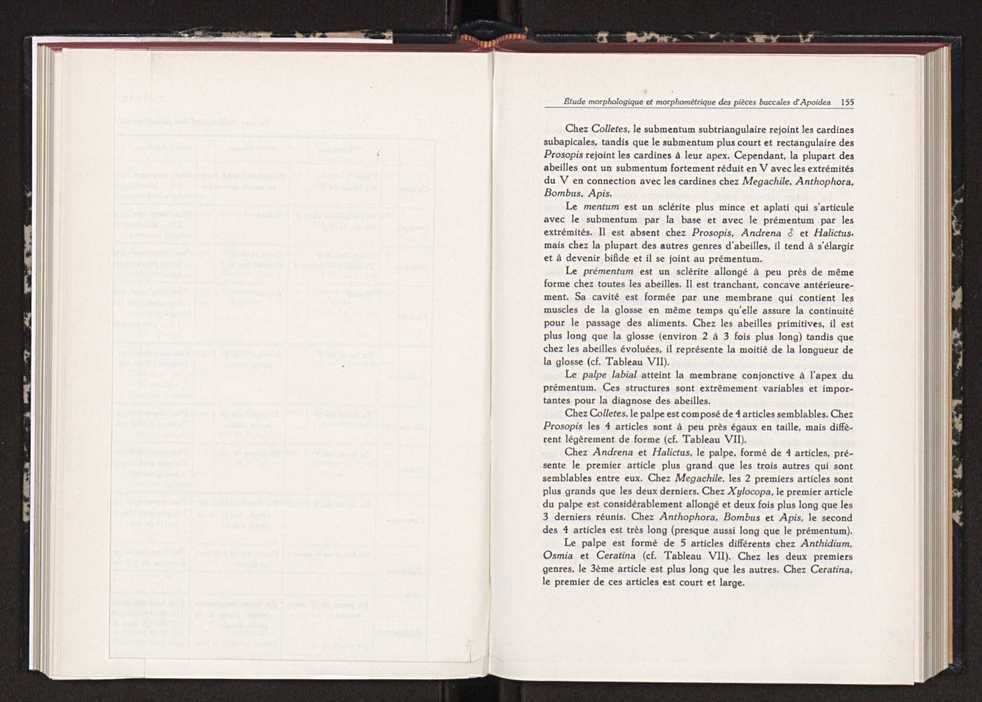 Étude morphologique et morphométrique des pièces buccales d'Apoidea 155
Chez Colletes, le submentum subtriangulaire rejoint les cardines
subapicales, tandis que le submentum plus court et rectangulaire des
Prosopis rejoint les cardines à leur apex. Cependant, la plupart des
abeilles ont un submentum fortement réduit en V avec les extrémités
du V en connection avec les cardines chez Megachile, Anthophora,
Bombus, Apis.
Le mentum est un sclérite plus mince et aplati qui s'articule
avec le submentum par la base et avec le prémentum par les
extrémités. Il est absent chez Prosopis, Andrena ♂ et Halictus,
mais chez la plupart des autres genres d'abeilles, il tend à s'élargir
et à devenir bifide et il se joint au prémentum.
Le prémentum est un sclérite allongé à peu près de même
forme chez toutes les abeilles. Il est tranchant, concave antérieure-
ment. Sa cavité est formée par une membrane qui contient les
muscles de la glosse en même temps qu'elle assure la continuité
pour le passage des aliments. Chez les abeilles primitives, il est
plus long que la glosse (environ 2 à 3 fois plus long) tandis que
chez les abeilles évoluées, il représente la moitié de la longueur de
la glosse (cf. Tableau VII).
Le palpe labial atteint la membrane conjonctive à l'apex du
prémentum. Ces structures sont extrêmement variables et impor-
tantes pour la diagnose des abeilles.
Chez Colletes, le palpe est composé de 4 articles semblables. Chez
Prosopis les 4 articles sont à peu près égaux en taille, mais diffè-
rent légèrement de forme (cf. Tableau VII).
Chez Andrena et Halictus, le palpe, formé de 4 articles, pré-
sente le premier article plus grand que les trois autres qui sont
semblables entre eux. Chez Megachile, les 2 premiers articles sont
plus grands que les deux derniers. Chez Xylocopa, le premier article
du palpe est considérablement allongé et deux fois plus long que les
3 derniers réunis. Chez Anthophora, Bombus et Apis, le second
des 4 articles est très long (presque aussi long que le prémentum).
Le palpe est formé de 5 articles différents chez Anthidium,
Osmia et Ceratina (cf. Tableau VII). Chez les deux premiers
genres, le 3ème article est plus long que les autres. Chez Ceratina,
le premier de ces articles est court et large.